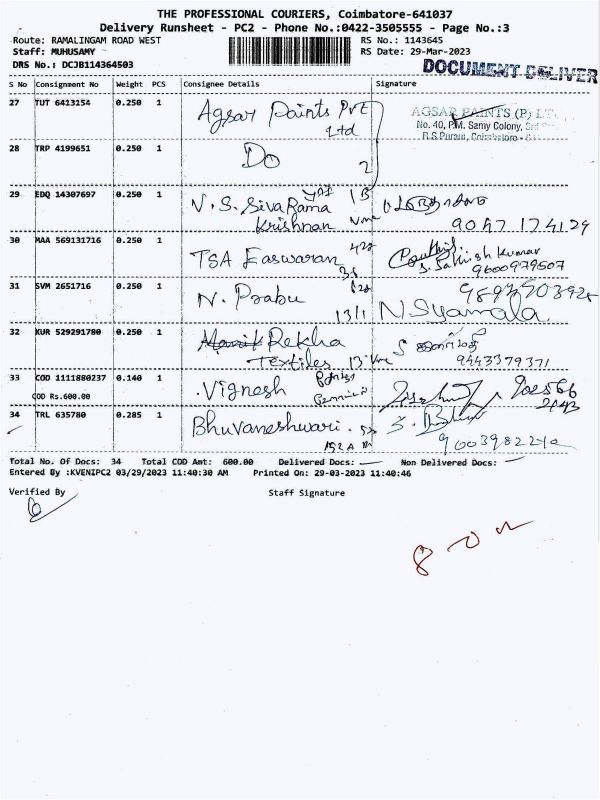 THE PROFESSIONAL COURIERS, Coimbatore-641037
Delivery Runsheet - PC2 - Phone No.:0422-3505555 - Page No.:3
Route: RAMALINGAM ROAD WEST
RS No.: 1143645
Staff: MUHUSAMY
RS Date: 29-Mar-2023
DRS No.: DCJB114364503
DOCUMENT DELIVER
S No Consignment No Weight PCS Consignee Details Signature
27 TUT 6413154 0.250 1 Agsar Paints Pvt
Ltd
AGSAR PAINTS (P) LT
No. 40, P.M. Samy Colony,
R.S.Puram, Coimbatore -
28 TRP 4199651 0.250 1 Do 2
29 EDQ 14307697 0.250 1 N.S. Siva Rama
Krishnan
9047 174129
30 MAA 569131716 0.250 1 TSA Easwaran
S. Sathish Kumar
9600979507
31 SVM 2651716 0.250 1 N. Prabu
13/1 N Syamala
32 KUR 529291780 0.250 1 Rekha
Textiles
9443379371
33 COD 1111880237 0.140 1 Vignesh
COD Rs.600.00
34 TRL 635780 0.285 1 Bhuvaneshwari
152A
Total No. Of Docs: 34 Total COD Amt: 600.00 Delivered Docs: Non Delivered Docs:
Entered By :KVENIPC2 03/29/2023 11:40:30 AM Printed On: 29-03-2023 11:40:46
Verified By Staff Signature